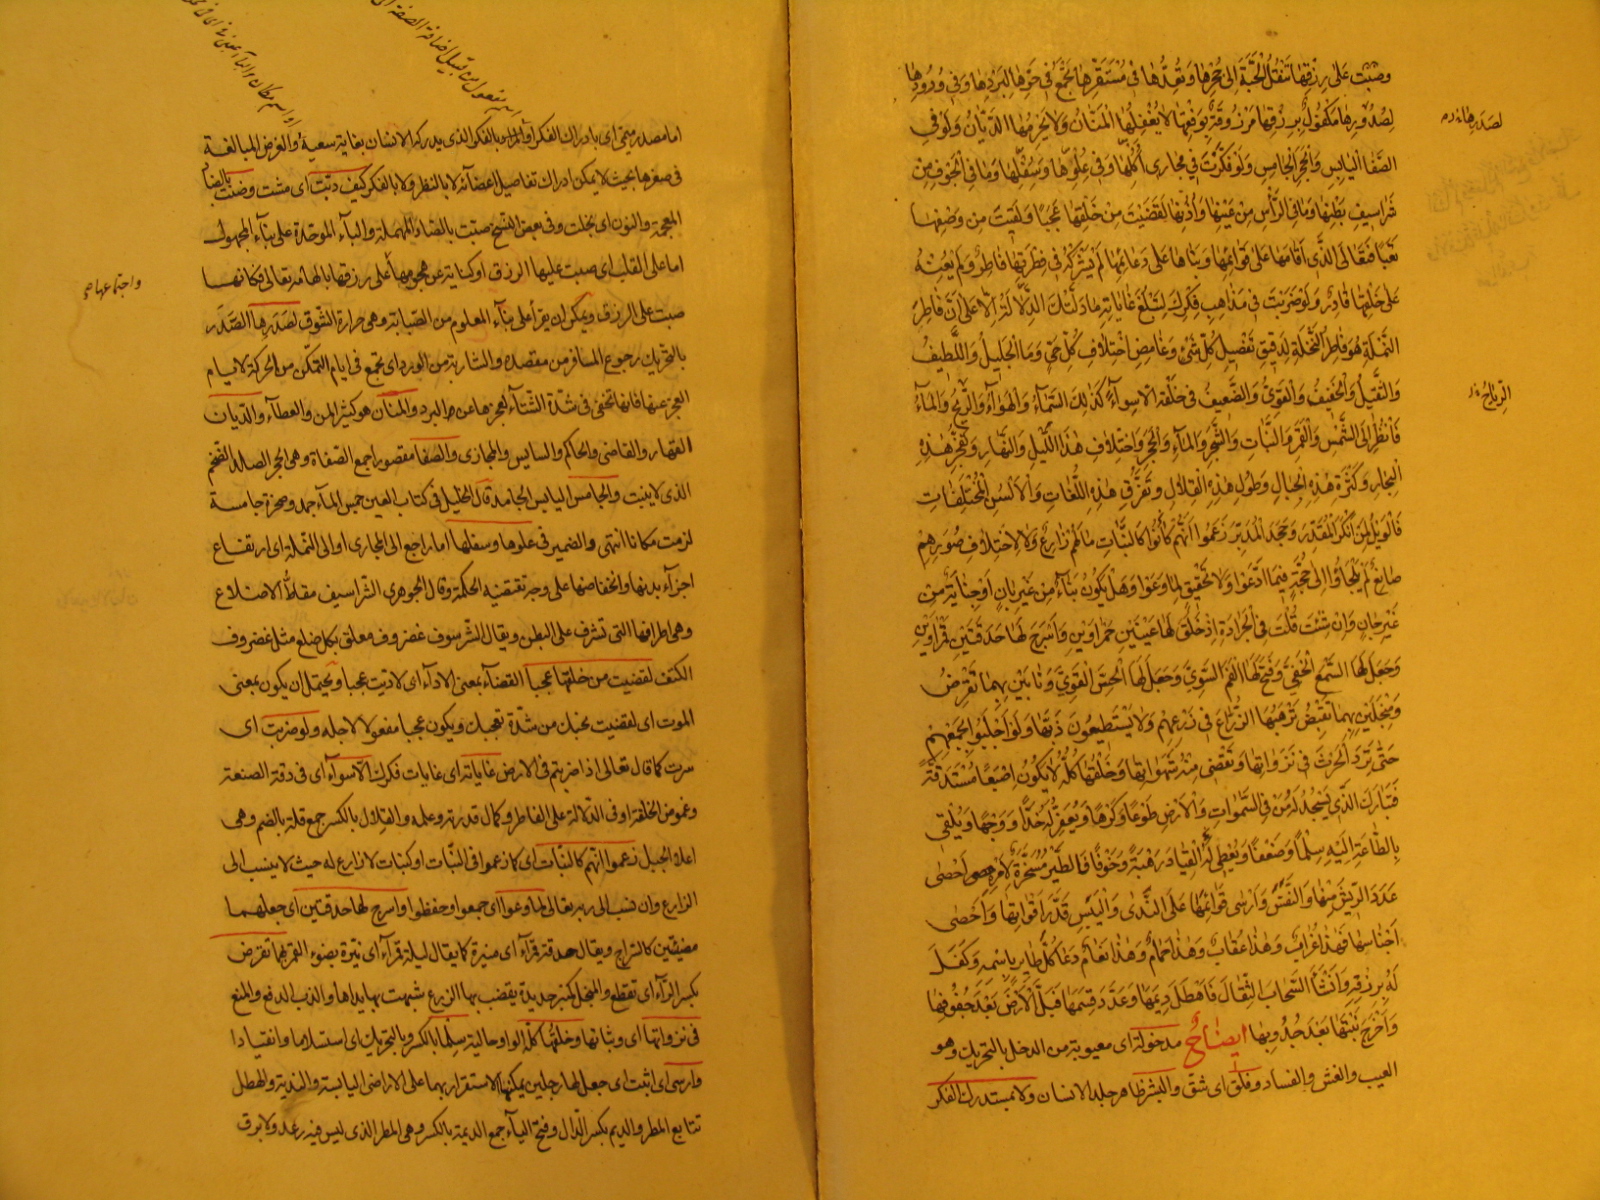 وصبّت على رزقها تنقل الحبّة الى جحرها وتعدّها فى مستقرّها تجمع فى حرّها لبردها وفى ورودها
لصدورها مكفول برزقها مرزوقة بوفقها لا يغفلها المنّان ولا يحرمها الدّيّان ولو فى
الصّفا اليابس والحجر الجامس ولو فكّرت فى مجارى أكلها وفى علوها وسفلها وما فى الجوف من
شراسيف بطنها وما فى الرأس من عينها وأذنها لقضيت من خلقها عجبًا ولقيت من وصفها
تعبًا فتعالى الّذى اقامها على قوائمها وبناها على دعائمها لم يشركه فى فطرتها فاطر ولم يعنه
على خلقها قادر ولو ضربت فى مذاهب فكرك لتبلغ غاياته ما دلّتك الدّلالة الّا على انّ فاطر
النّملة هو فاطر النّخلة لدقيق تفصيل كلّ شئ وغامض اختلاف كلّ حىّ وما الجليل واللّطيف
والثّقيل والخفيف والقوىّ والضّعيف فى خلقه الا سواء كذلك السّماء والهواء والرّيح والماء
فانظر الى الشّمس والقمر والنّبات والشّجر والماء والحجر واختلاف هذا اللّيل والنّهار وتفجّر هذه
البحار وكثرة هذه الجبال وطول هذه القلال وتفرّق هذه اللّغات والالسن المختلفات
فالويل لمن انكر المقدّر وجحد المدبّر زعموا انّهم كالنّبات ما لهم زارع ولا لاختلاف صورهم
صانع لم يلجأوا الى حجّة فيما ادّعوا ولا تحقيق لما وعوا وهل يكون بناء من غير بان او جناية من
غير جان وان شئت قلت فى الجرادة اذ خلق لها عينين حمراوين واسرج لها حدقتين قمراوين
وجعل لها السّمع الخفىّ وفتح لها الفم السّوىّ وجعل لها الحسّ القوىّ ونابين بهما تقرض
ومنجلين بهما تقبض ترهبها الزّرّاع فى زرعهم ولا يستطيعون ذبّها ولو اجلبوا بجمعهم
حتّى ترد الحرث فى نزواتها وتقضى منه شهواتها وخلقها كلّه لا يكون اصبعًا مستدقّة
فتبارك الّذى يسجد له من فى السّموات والارض طوعا وكرها ويعفّر له خدّا ووجها ويلقى
بالطّاعة اليه سلمًا وضعفًا ويعطى له القياد رهبة وخوفًا فالطّير مسخّرة لامره احصى
عدد الرّيش منها والنّفس وارسى قوائمها على النّدى واليبس قدّر اقواتها واحصى
اجناسها فهذا غراب وهذا عقاب وهذا حمام وهذا نعام دعا كلّ طاير باسمه وكفل
له برزقه وانشأ السّحاب الثّقال فاهطل ديمها وعدّد قسمها فبلّ الارض بعد جفوفها
واخرج نبتها بعد جدوبها ايضاح مدخولة اى معيوبة من الدخل بالتحريك وهو
العيب والغش والفساد وفلق اى شق والبشر ظاهر جلد الانسان ولا بمستدرك الفكر
لصدرها
الرياح
اما مصدر ميمىّ اى بادراك الفكر او المراد بالفكر الذى يدركه الانسان بغاية سعيه والغرض المبالغة
فى صغرها بحيث لا يمكن ادراك تفاصيل اعضائه لا بالنظر ولا بالفكر كيف دبّت اى مشت وضنت بالضاد
المعجمة والنون اى بخلت وفى بعض النسخ صبت بالصاد المهملة والباء الموحدة على بناء المجهول
اما على القلب اى صبت عليها الرزق او كناية عن هجومها على رزقها بالهامه تعالى فكانها
صبت على الرزق ويمكن ان يقرأ على بناء المعلوم من الصبابة وهى حرارة الشوق لصدرها الصّدر
بالتحريك رجوع المسافر من مقصده والشاربة من الورد اى تجمع فى ايام التمكّن من الحركة لايام
العجز عنها فانها تخفى فى شدة الشتاء لعجزها عن البرد والمنان هو كثير المن والعطاء والديان
القهار والقاضى والحاكم والسايس والمجازى والصفا مقصورا جمع الصفاة وهى الحجر الصلد الضخم
الذى لا ينبت والجامس اليابس الجامد قال الخليل فى كتاب العين جمس الماء جمد وصخرة جامسة
لزمت مكانا انتهى والضمير فى علوها وسفلها اما راجع الى المجارى او الى النملة اى ارتفاع
اجزاء بدنها وانخفاضها على وجه تقتضيه الحكمة وقال الجوهرى الشراسيف مقاطّ الاضلاع
وهى اطرافها التى تشرف على البطن ويقال الشرسوف غضروف معلق بكل ضلع مثل غضروف
الكتف لقضيت من خلقها عجبا القضاء بمعنى الاداء اى لاديت عجبا ويحتمل ان يكون بمعنى
الموت اى لقضيت نحبك من شدة تعجبك ويكون عجبا مفعولا لاجله ولو ضربت اى
سرت كما قال تعالى اذا ضربتم فى الارض غاياته اى غايات فكرك الا سواء اى فى دقة الصنعة
وغموض الخلقة او فى الدلالة على الفاطر وكمال قدرته وعلمه والقلال بالكسر جمع قلة بالضم وهى
اعلا الجبل زعموا انهم كالنّبات اى كما زعموا فى النبات او كنبات لا زارع له حيث لا ينسب الى
الزارع وان نسب الى ربه تعالى لما وعوا اى جمعوا وحفظوا واسرج لها حدقتين اى جعلهما
مضيئتين كالسراج ويقال حدقة قمراء اى منيرة كما يقال ليلة قمراء اى نيّرة بضوء القمر بهما تقرض
بكسر الراء اى تقطع والمنجل كمنبر حديدة يقضب بها الزرع شبهت بها يداها والذب الدفع والمنع
فى نزواتها اى وثباتها وخلقها كلّه الواو حالية سلمًا بالكسر وبالتحريك اى استسلاما وانقيادا
وارسى اى اثبت اى جعل لها رجلين يمكنها الاستقرار بهما على الاراضى اليابسة والندية والهطل
تتابع المطر والديم بكسر الدال وفتح الياء جمع الديمة بالكسر وهى المطر الذى ليس فيه رعد ولا برق
واجتماعها صح
او اسم مكان والباء بمعنى فى اى فى
اسم مفعول من قبيل اضافة الصفة